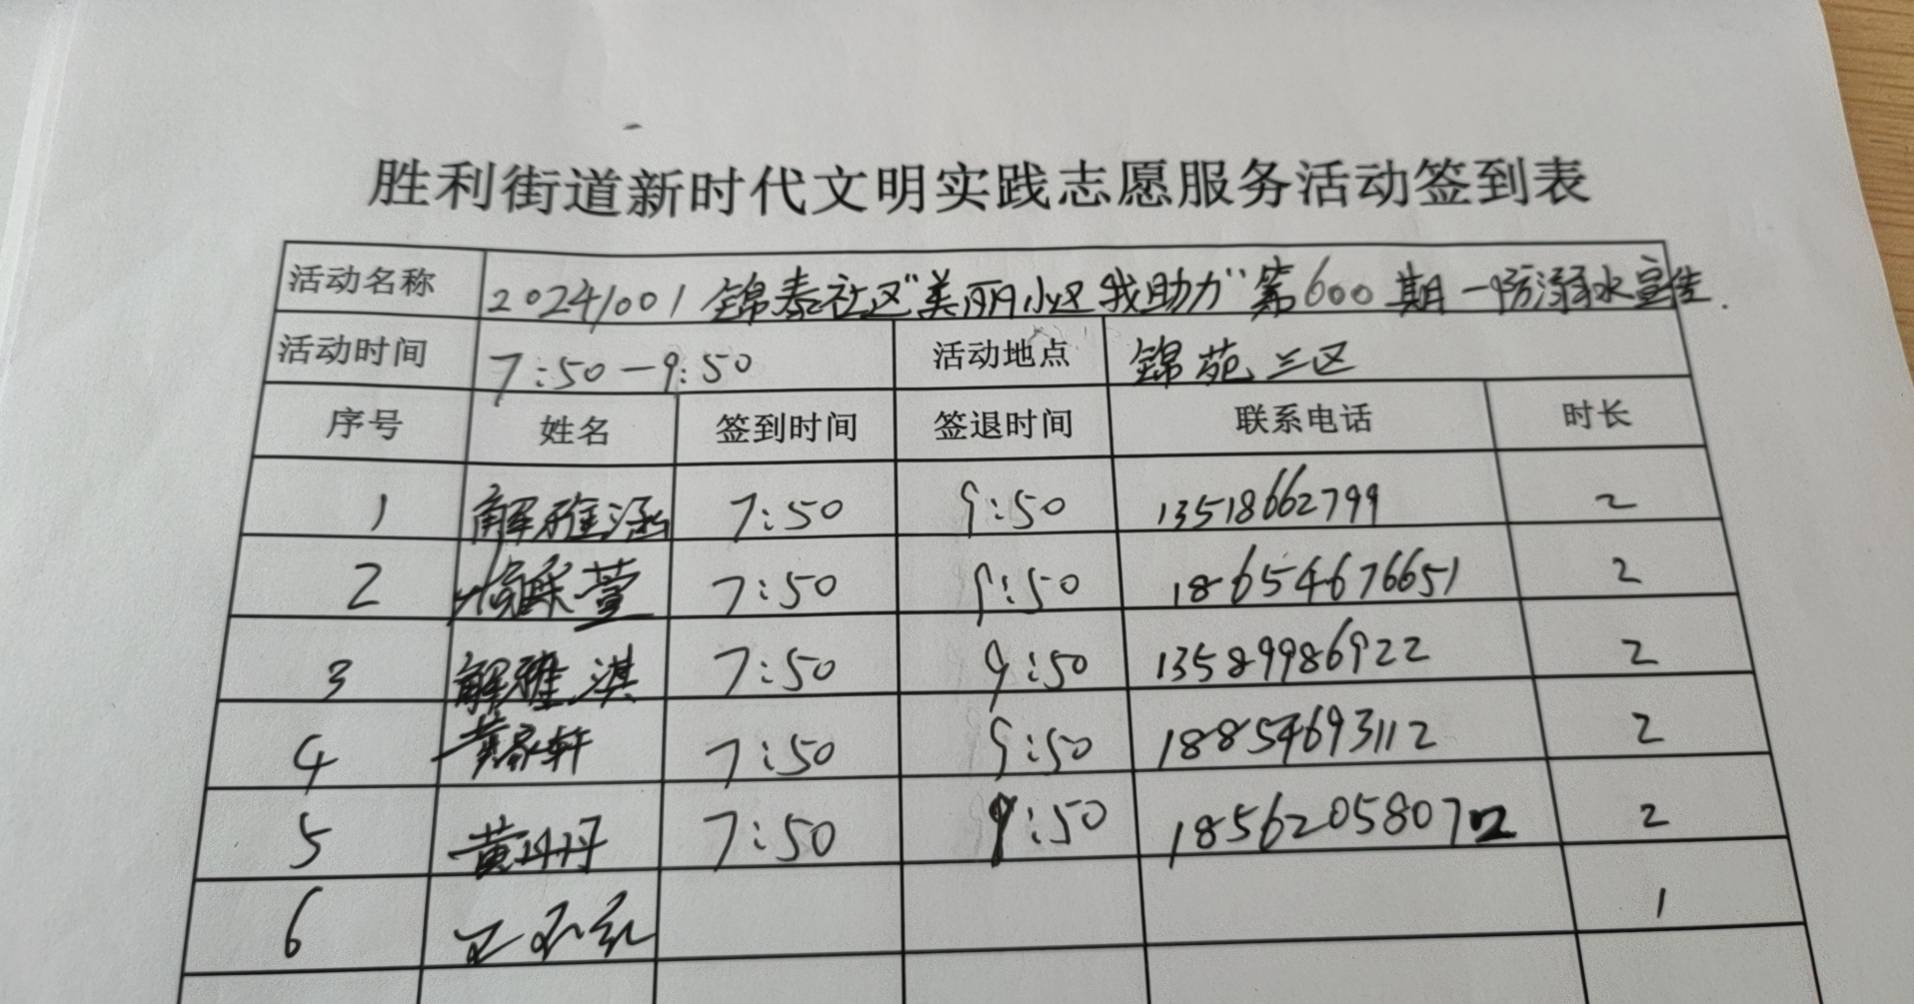 胜利街道新时代文明实践志愿服务活动签到表
活动名称 20241001 锦泰社区“美丽小区我助力”第600期一防溺水宣传.
活动时间 7:50-9:50 活动地点 锦苑三区
序号 姓名 签到时间 签退时间 联系电话 时长
1 解雅涵 7:50 9:50 13518662799 2
2 萱 7:50 9:50 18654676651 2
3 解雅淇 7:50 9:50 13589986922 2
4 黄家轩 7:50 9:50 18854693112 2
5 黄丹丹 7:50 9:50 1856205807 2
6 王 红 1